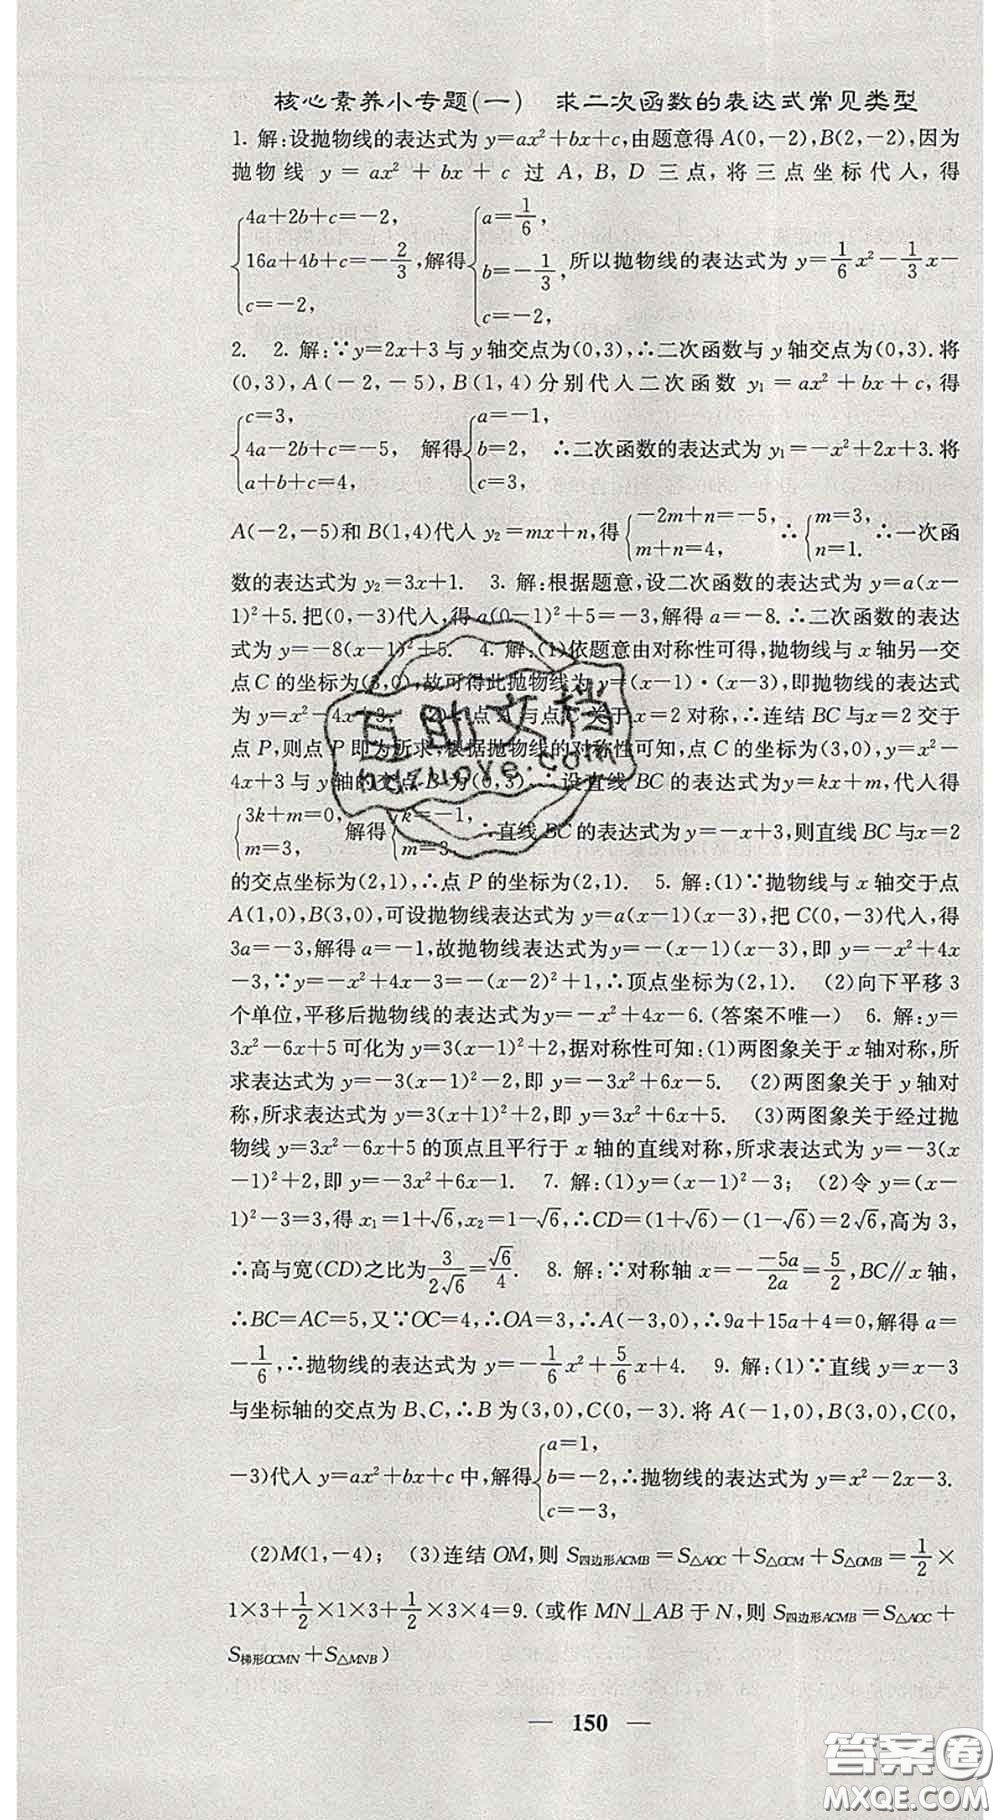 核心素养小专题(一)　求二次函数的表达式常见类型
1. 解:设抛物线的表达式为 y=ax²+bx+c,由题意得 A(0,-2),B(2,-2),因为
抛物线 y = ax² + bx + c 过 A, B, D 三点,将三点坐标代人,得
{4a+2b+c=-2, 16a+4b+c=-2/3, c=-2, 解得 {a=1/6, b=-1/3, c=-2, 所以抛物线的表达式为 y=1/6x²-1/3x-
2.　2. 解:∵y=2x+3与 y 轴交点为(0,3),∴二次函数与 y 轴交点为(0,3).将
(0,3),A(-2,-5),B(1,4)分别代人二次函数 y₁=ax²+bx+c,得
{c=3, 4a-2b+c=-5, a+b+c=4, 解得 {a=-1, b=2, c=3, ∴二次函数的表达式为 y₁=-x²+2x+3.将
A(-2,-5)和 B(1,4)代人 y₂=mx+n,得 {-2m+n=-5, m+n=4, ∴ {m=3, n=1. ∴一次函
数的表达式为 y₂=3x+1.　3. 解:根据题意,设二次函数的表达式为 y=a(x-
1)²+5.把(0,-3)代人,得 a(0-1)²+5=-3,解得 a=-8.∴二次函数的表达
式为 y=-8(x-1)²+5.　4. 解:(1)依题意由对称性可得,抛物线与 x 轴另一交
点 C 的坐标为(3,0),故可得此抛物线为 y=(x-1)·(x-3),即抛物线的表达式
为 y=x²-4x+3. 点 与点 关于 x=2 对称,∴连结 BC 与 x=2 交于
点 P,则点 P 即为所求,根据抛物线的对称性可知,点 C 的坐标为(3,0),y=x²-
4x+3 与 y 轴的交点 B 为(0,3).∴设直线 BC 的表达式为 y=kx+m,代人得
{3k+m=0, m=3, 解得 {k=-1, m=3. ∴直线 BC 的表达式为 y=-x+3,则直线 BC 与 x=2
的交点坐标为(2,1),∴点 P 的坐标为(2,1).　5. 解:(1)∵抛物线与 x 轴交于点
A(1,0),B(3,0),可设抛物线表达式为 y=a(x-1)(x-3),把 C(0,-3)代人,得
3a=-3,解得 a=-1,故抛物线表达式为 y=-(x-1)(x-3),即 y=-x²+4x
-3,∵y=-x²+4x-3=-(x-2)²+1,∴顶点坐标为(2,1).　(2)向下平移 3
个单位,平移后抛物线的表达式为 y=-x²+4x-6.(答案不唯一)　6. 解:y=
3x²-6x+5 可化为 y=3(x-1)²+2,据对称性可知:(1)两图象关于 x 轴对称,所
求表达式为 y=-3(x-1)²-2,即 y=-3x²+6x-5.　(2)两图象关于 y 轴对
称,所求表达式为 y=3(x+1)²+2,即 y=3x²+6x+5.　(3)两图象关于经过抛
物线 y=3x²-6x+5 的顶点且平行于 x 轴的直线对称,所求表达式为 y=-3(x
-1)²+2,即 y=-3x²+6x-1.　7. 解:(1)y=(x-1)²-3;　(2)令 y=(x-
1)²-3=3,得 x₁=1+√6,x₂=1-√6,∴CD=(1+√6)-(1-√6)=2√6,高为 3,
∴高与宽(CD)之比为 3/(2√6)=√6/4.　8. 解:∵对称轴 x=-(-5a)/(2a)=5/2,BC∥x 轴,
∴BC=AC=5,又∵OC=4,∴OA=3,∴A(-3,0),∴9a+15a+4=0,解得 a=
-1/6,∴抛物线的表达式为 y=-1/6x²+5/6x+4.　9. 解:(1)∵直线 y=x-3
与坐标轴的交点为 B、C,∴B 为(3,0),C(0,-3).将 A(-1,0),B(3,0),C(0,
-3)代人 y=ax²+bx+c 中,解得 {a=1, b=-2, c=-3, ∴抛物线的表达式为 y=x²-2x-3.
(2)M(1,-4);　(3)连结 OM,则 S四边形ACMB=S△AOC+S△OCM+S△OMB=1/2×
1×3+1/2×1×3+1/2×3×4=9.(或作 MN⊥AB 于 N,则 S四边形ACMB=S△AOC+
S梯形OCMN+S△MNB)
— 150 —
互助文档
hdzhuove.com
答案圈
MXQE.COM